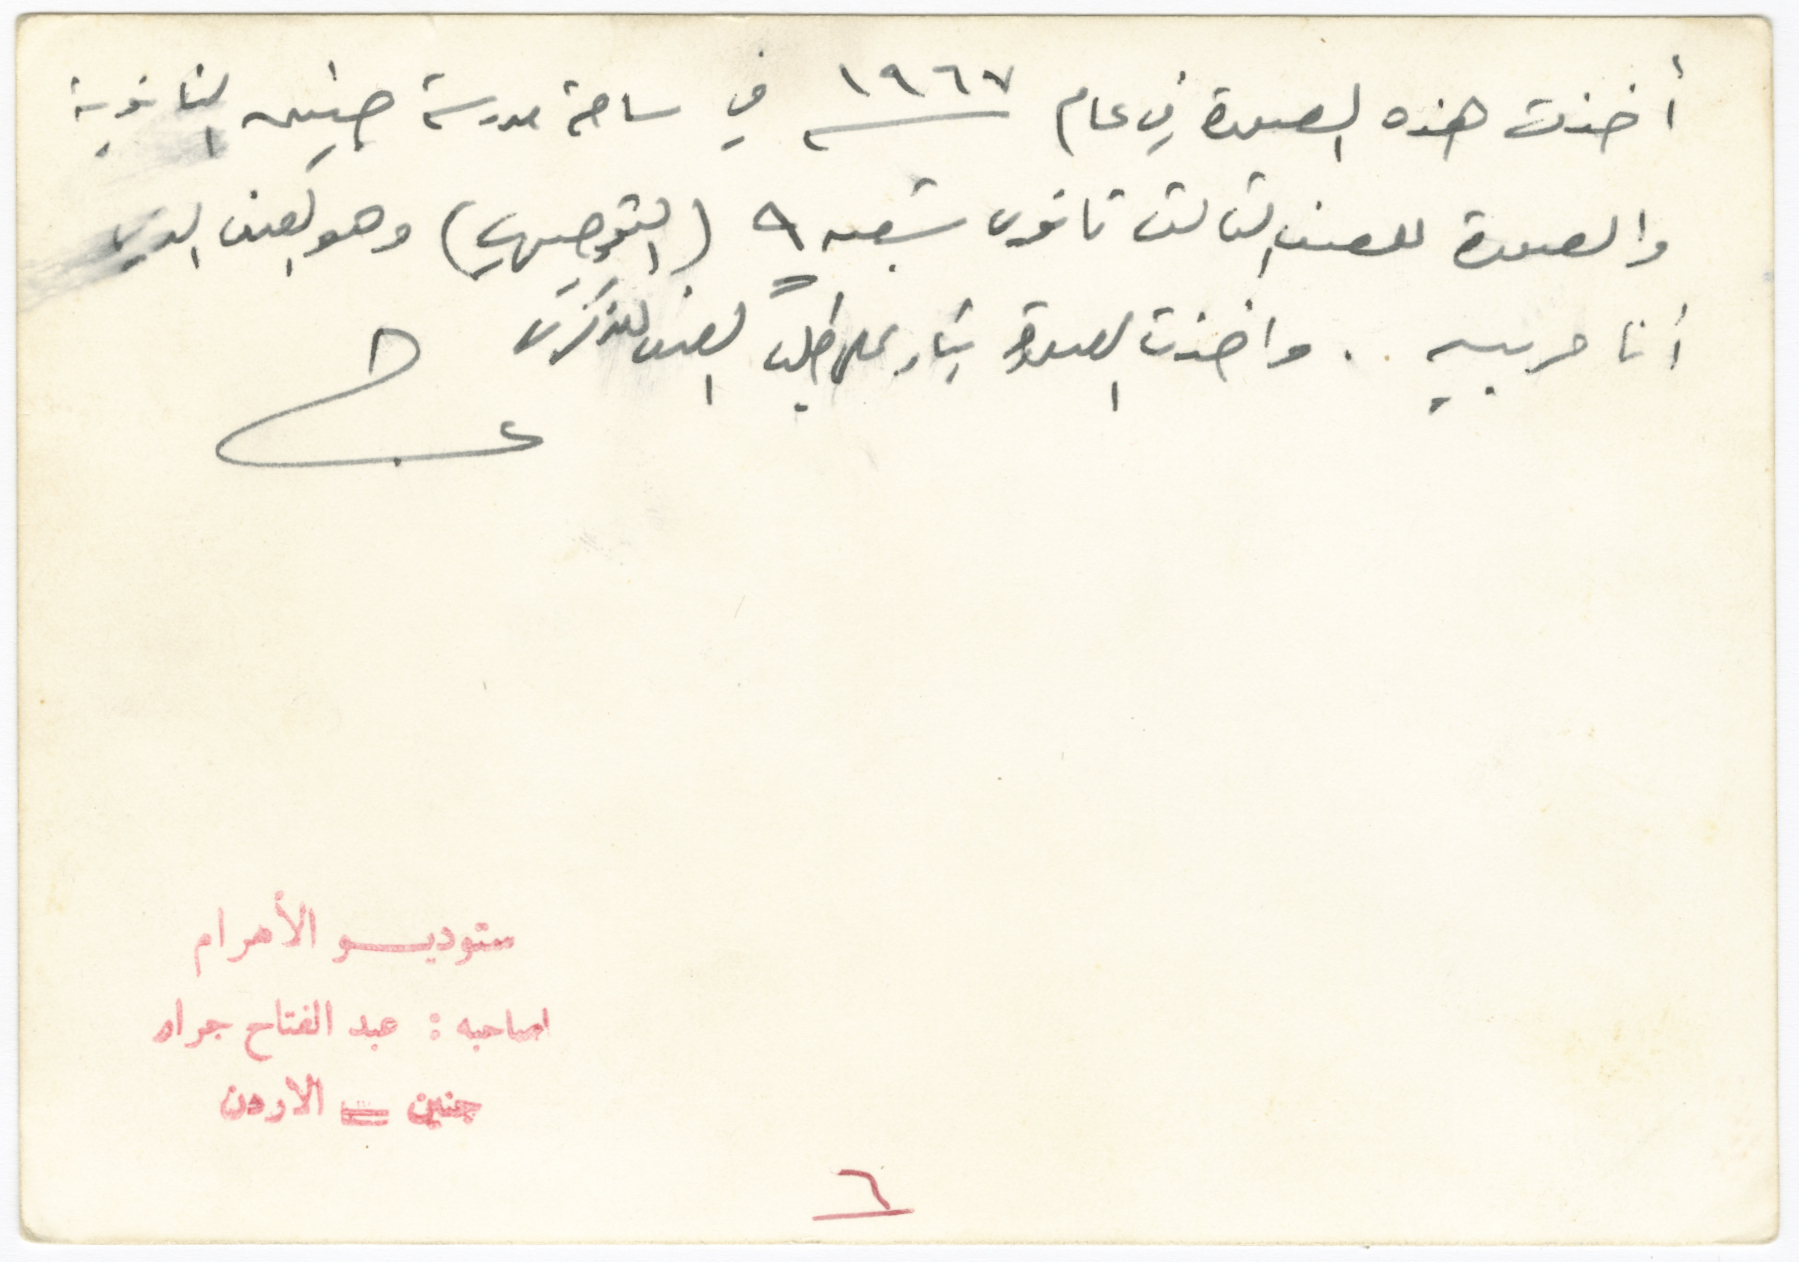 أخذت هذه الصورة في عام ١٩٦٧ في ساحة مدرسة جنين الثانوية
والصورة للصف الثالث ثانوي شعبة (التوجيهي) وهو الصف الذي
أنا مربيه .. واخذت الصورة بناء على طلب الصف للذكرى
ستوديو الأهرام
لصاحبه : عبد الفتاح جرار
جنين = الاردن
٦